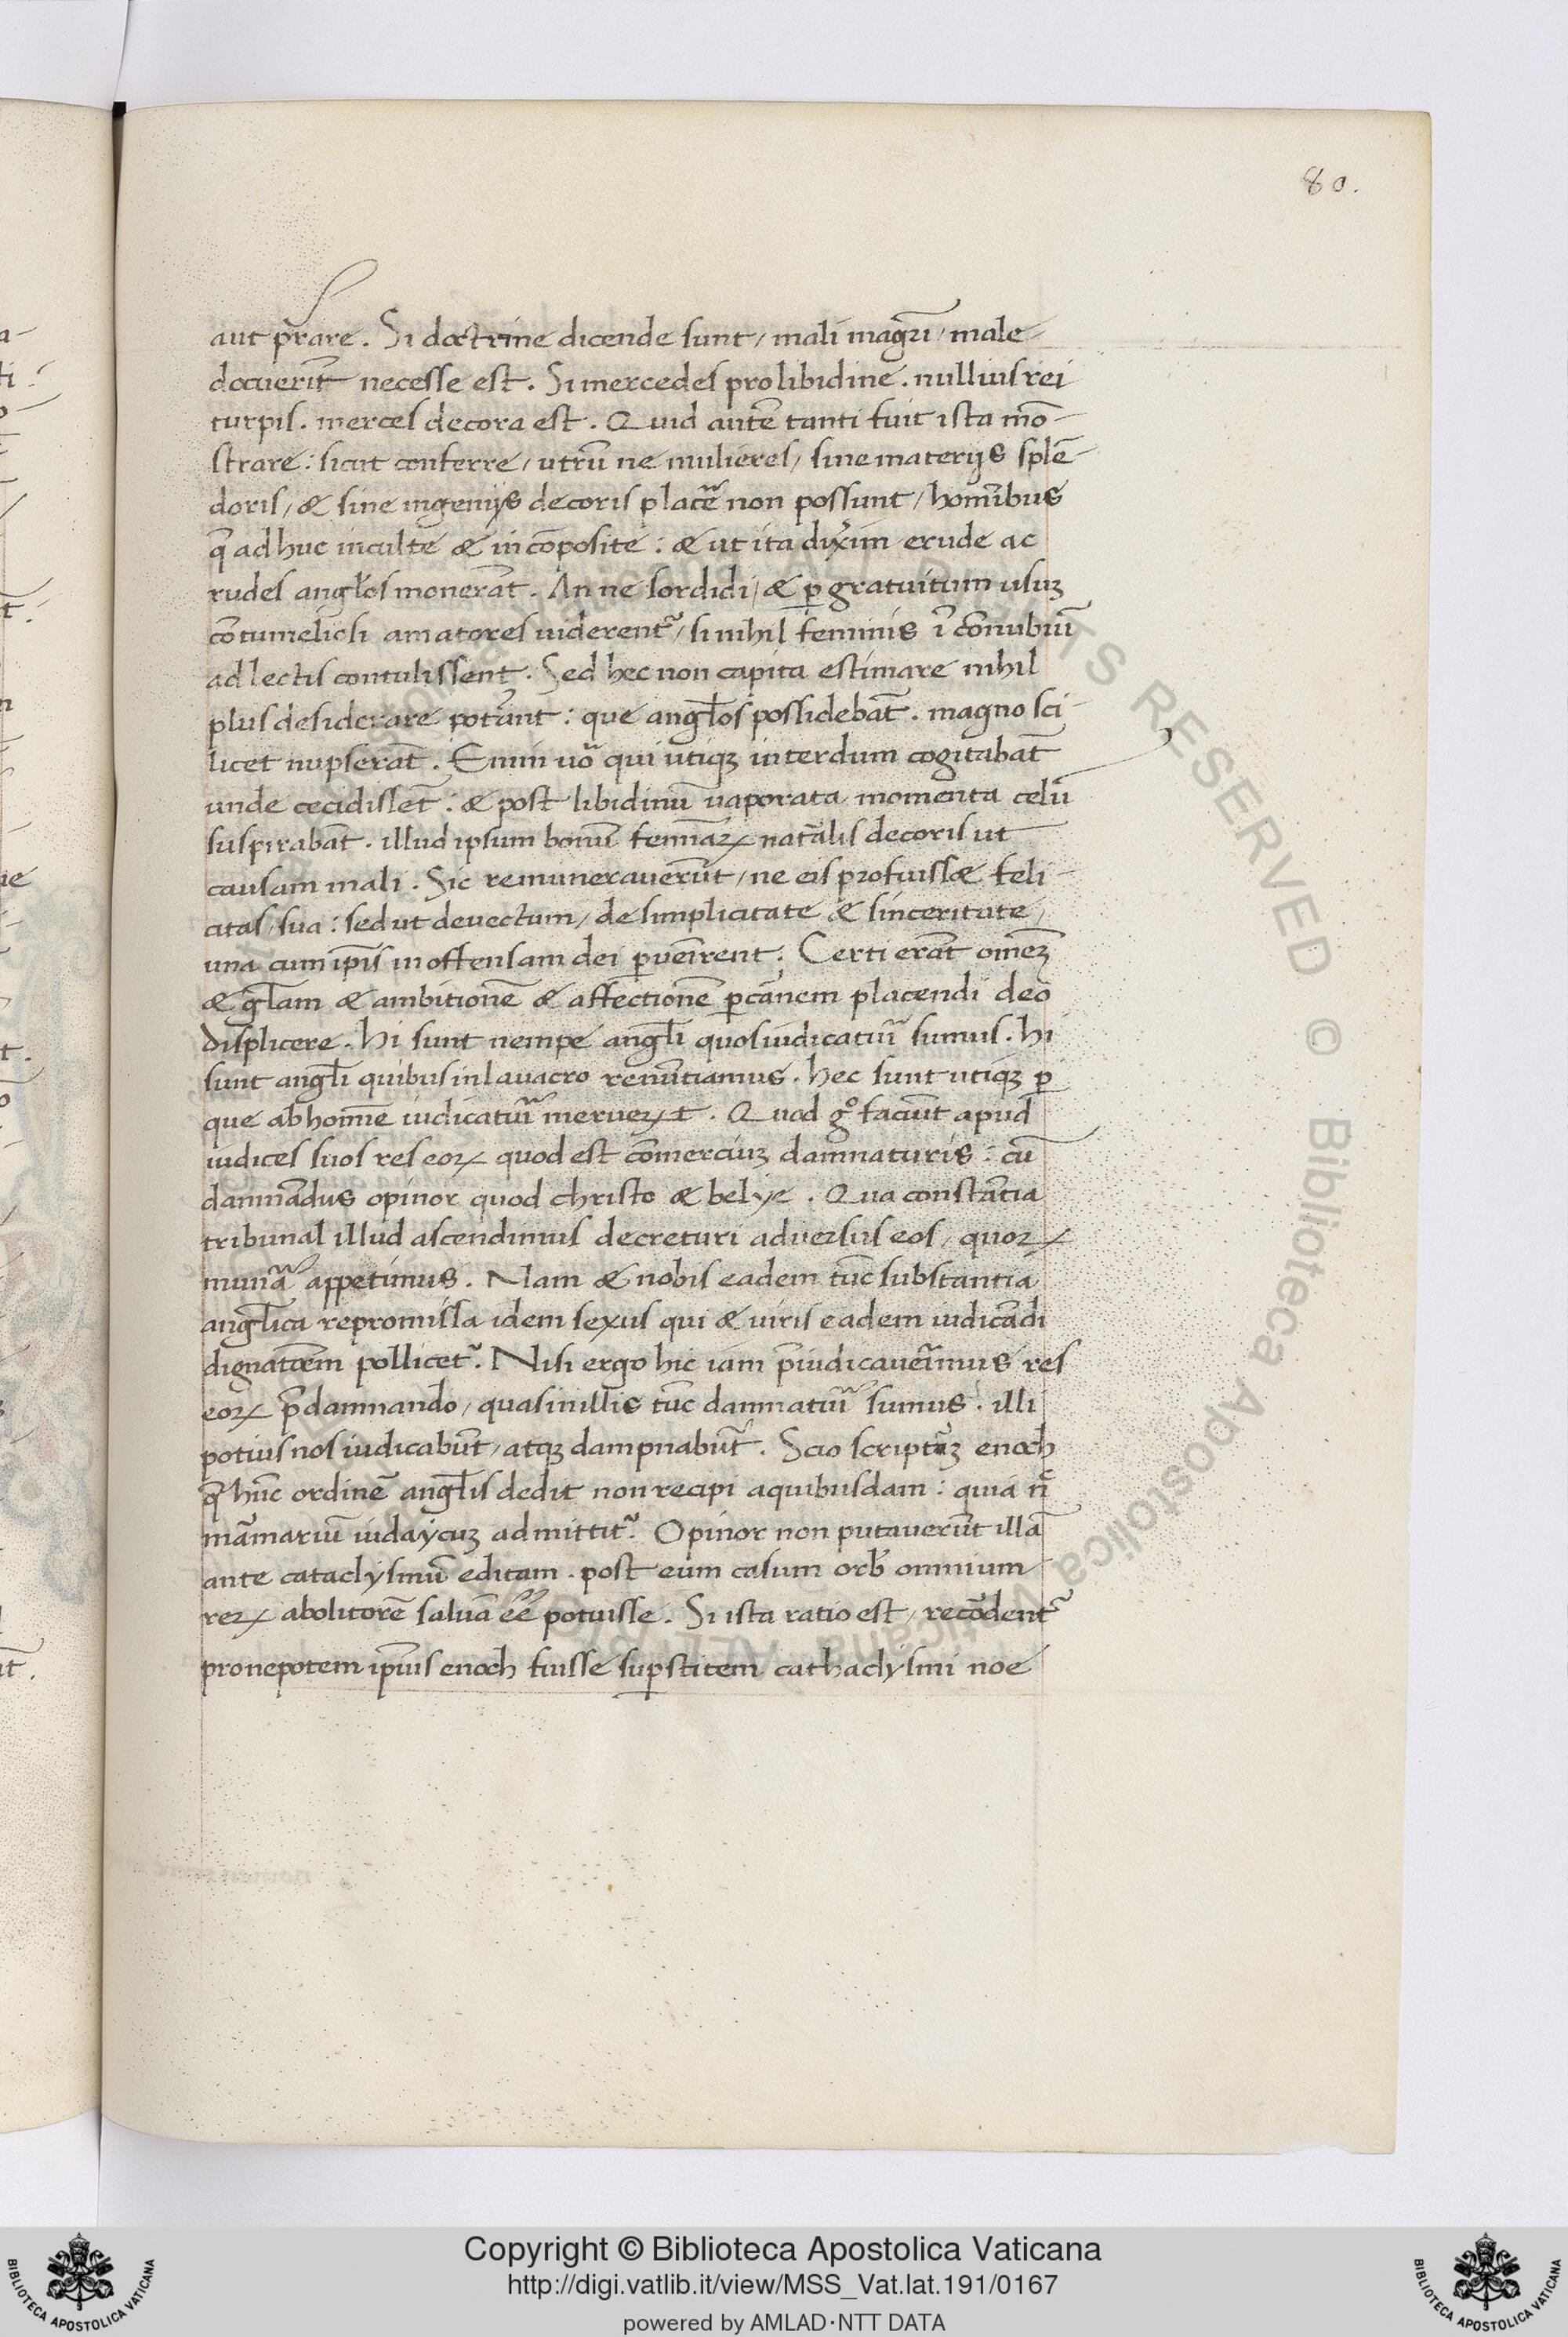 80.
aut p̄rare. Si doctrine dicende sunt, mali magr̄i, male-
docuerīt necesse est. Si mercedes pro libidine. nullius rei
turpis. merces decora est. Quid autē tanti fuit ista mō-
strare: sicut conferre, utrū ne mulieres, sine materijs splē-
doris, & sine ingenijs decoris placē non possunt, hominibus
q̄ ad huc inculte & incōposite: & ut ita dixerim erude ac
rudes angl̄os monerāt. An ne sordidi, & ꝑ gratuitum usuꝫ
cōtumeliosi amatores uiderent᷑, si nihil feminis ī cōnubiū
ad lectis contulissent. Sed hec non capita estimare nihil
plus desiderare potȓant: que angl̄os possidebāt. magno sci-
licet nupserāt. Enim uō qui utiqꝫ interdum cogitabāt
unde cecidissēt: & post libidinū uaporata momenta celū
suspirabāt. illud ipsum bonū feminaꝝ nat̄alis decoris ut
causam mali. Sic remuneraverūt, ne eis profuissæ feli-
citas, sua: sed ut devectum, de simplicitate & sinceritate,
una cum ip̄is in offensam dei ꝑueīrent: Certi erāt omēꝫ
& gl̄am & ambitionē & affectionē ꝑ cānem placendi deo
displicere. Hi sunt nempe angl̄i quos iudicatuȓi sumus. hi
sunt angl̄i quibus in lavacro renūtiamus. hec sunt utiqꝫ ꝑ
que ab hoīme iudicatuȓi merueꝝt. Quod gͦ faciūt apud
iudices suos res eoꝝ quod est cōmerciuꝫ damnaturis: cū
damnādus opinor quod christo & belye. Qua constātia
tribunal illud ascendimus decreturi adversus eos, quoꝝ
munȓa appetimus. Nam & nobis eadem tūc substantia
angl̄ica repromissa idem sexus qui & uiris eadem iudicādi
dignatōem pollicet᷑. Nisi ergo hic iam p̄iudicaverīmus res
eoꝝ p̄damnando, quas in illis tūc damnatuȓi sumus. illi
potius nos iudicabūt, atqꝫ dampnabūt. Scio scriptȓaꝫ enoch
q̄ hūc ordinē angl̄is dedit non recipi a quibusdam: quia n̄
māmarium iudaycuꝫ admittit᷑. Opinor non putaverūt illā
ante cataclysmū editam. post eum casum orb̄ omnium
reꝝ abolitorē saluā eē potuisse. Si ista ratio est, recōdent᷑
pronepotem ip̄ius enoch fuisse suꝑstitem cathaclysmi noe
Copyright © Biblioteca Apostolica Vaticana
http://digi.vatlib.it/view/MSS_Vat.lat.191/0167
powered by AMLAD·NTT DATA